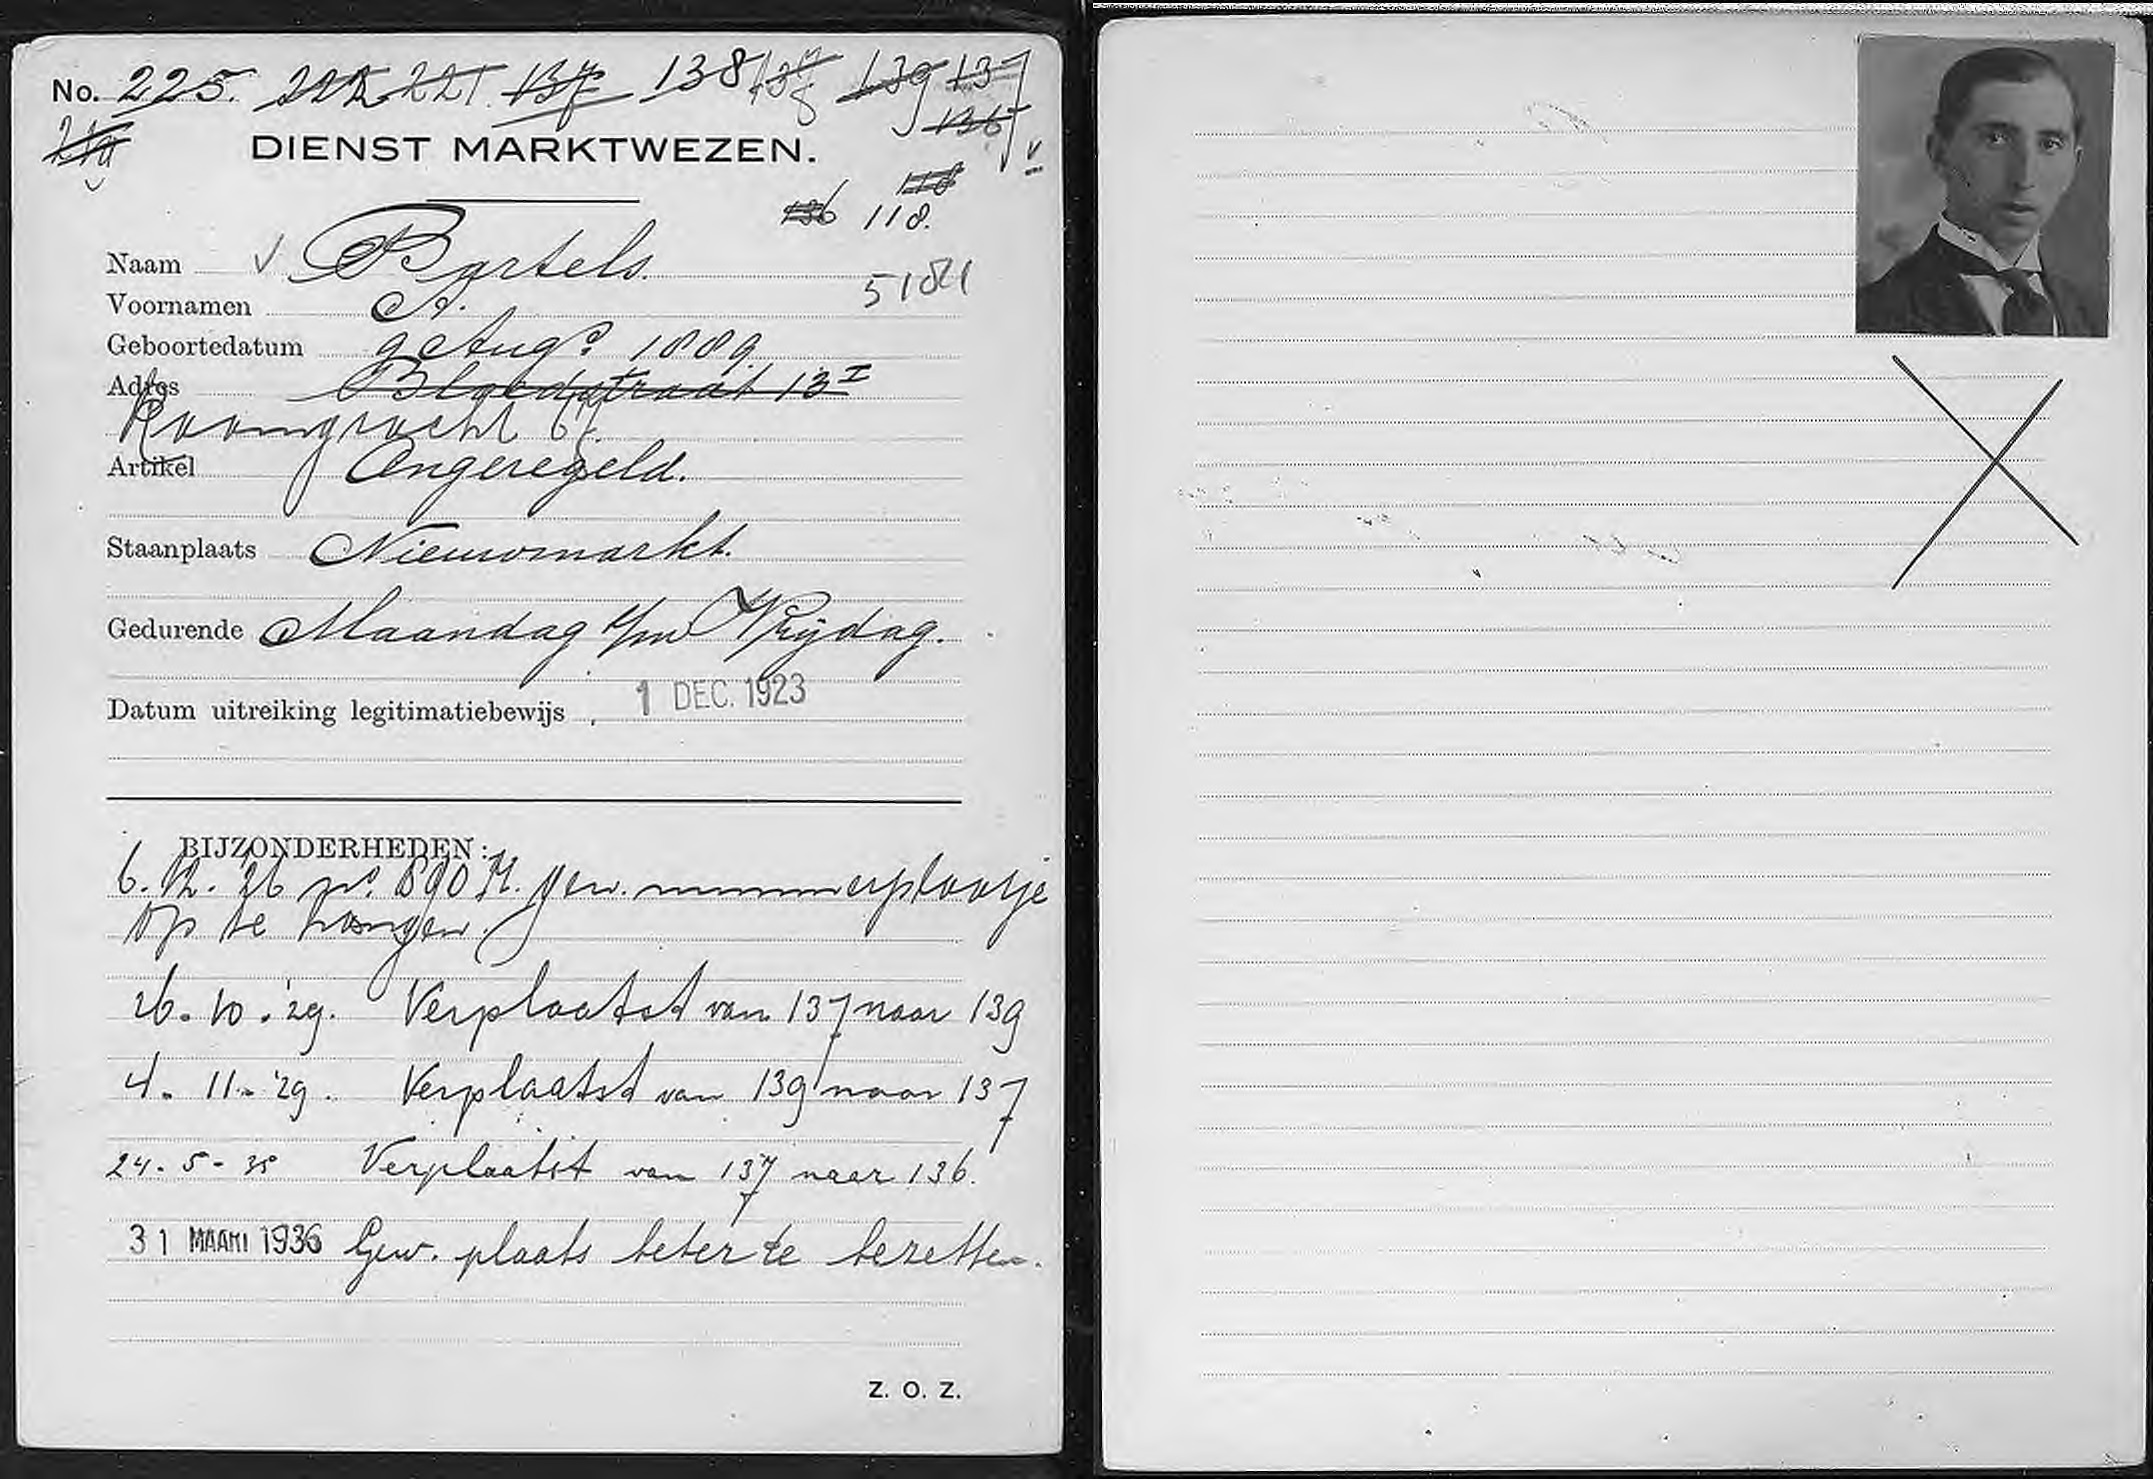 No. 225. 222 221 137 138 137 139 137
136
DIENST MARKTWEZEN.
118
136 118.
Naam Bartels.
5184
Voornamen A.
Geboortedatum 9 Augs. 1889
Adres Bloedstraat 13 I
Roomgracht 67.
Artikel Ongeregeld.
Staanplaats Nieuwmarkt.
Gedurende Maandag t/m Vrijdag.
Datum uitreiking legitimatiebewijs 1 DEC. 1923
BIJZONDERHEDEN:
6.12.'26 no. 890 M. gew. nummerplaatje
op te hangen.
26.10.'29. Verplaatst van 137 naar 139
4. 11.-'29. Verplaatst van 139 naar 137
24-5-35 Verplaatst van 137 naar 136.
31 MAART 1936 Gew. plaats beter te bezetten.
Z. O. Z.